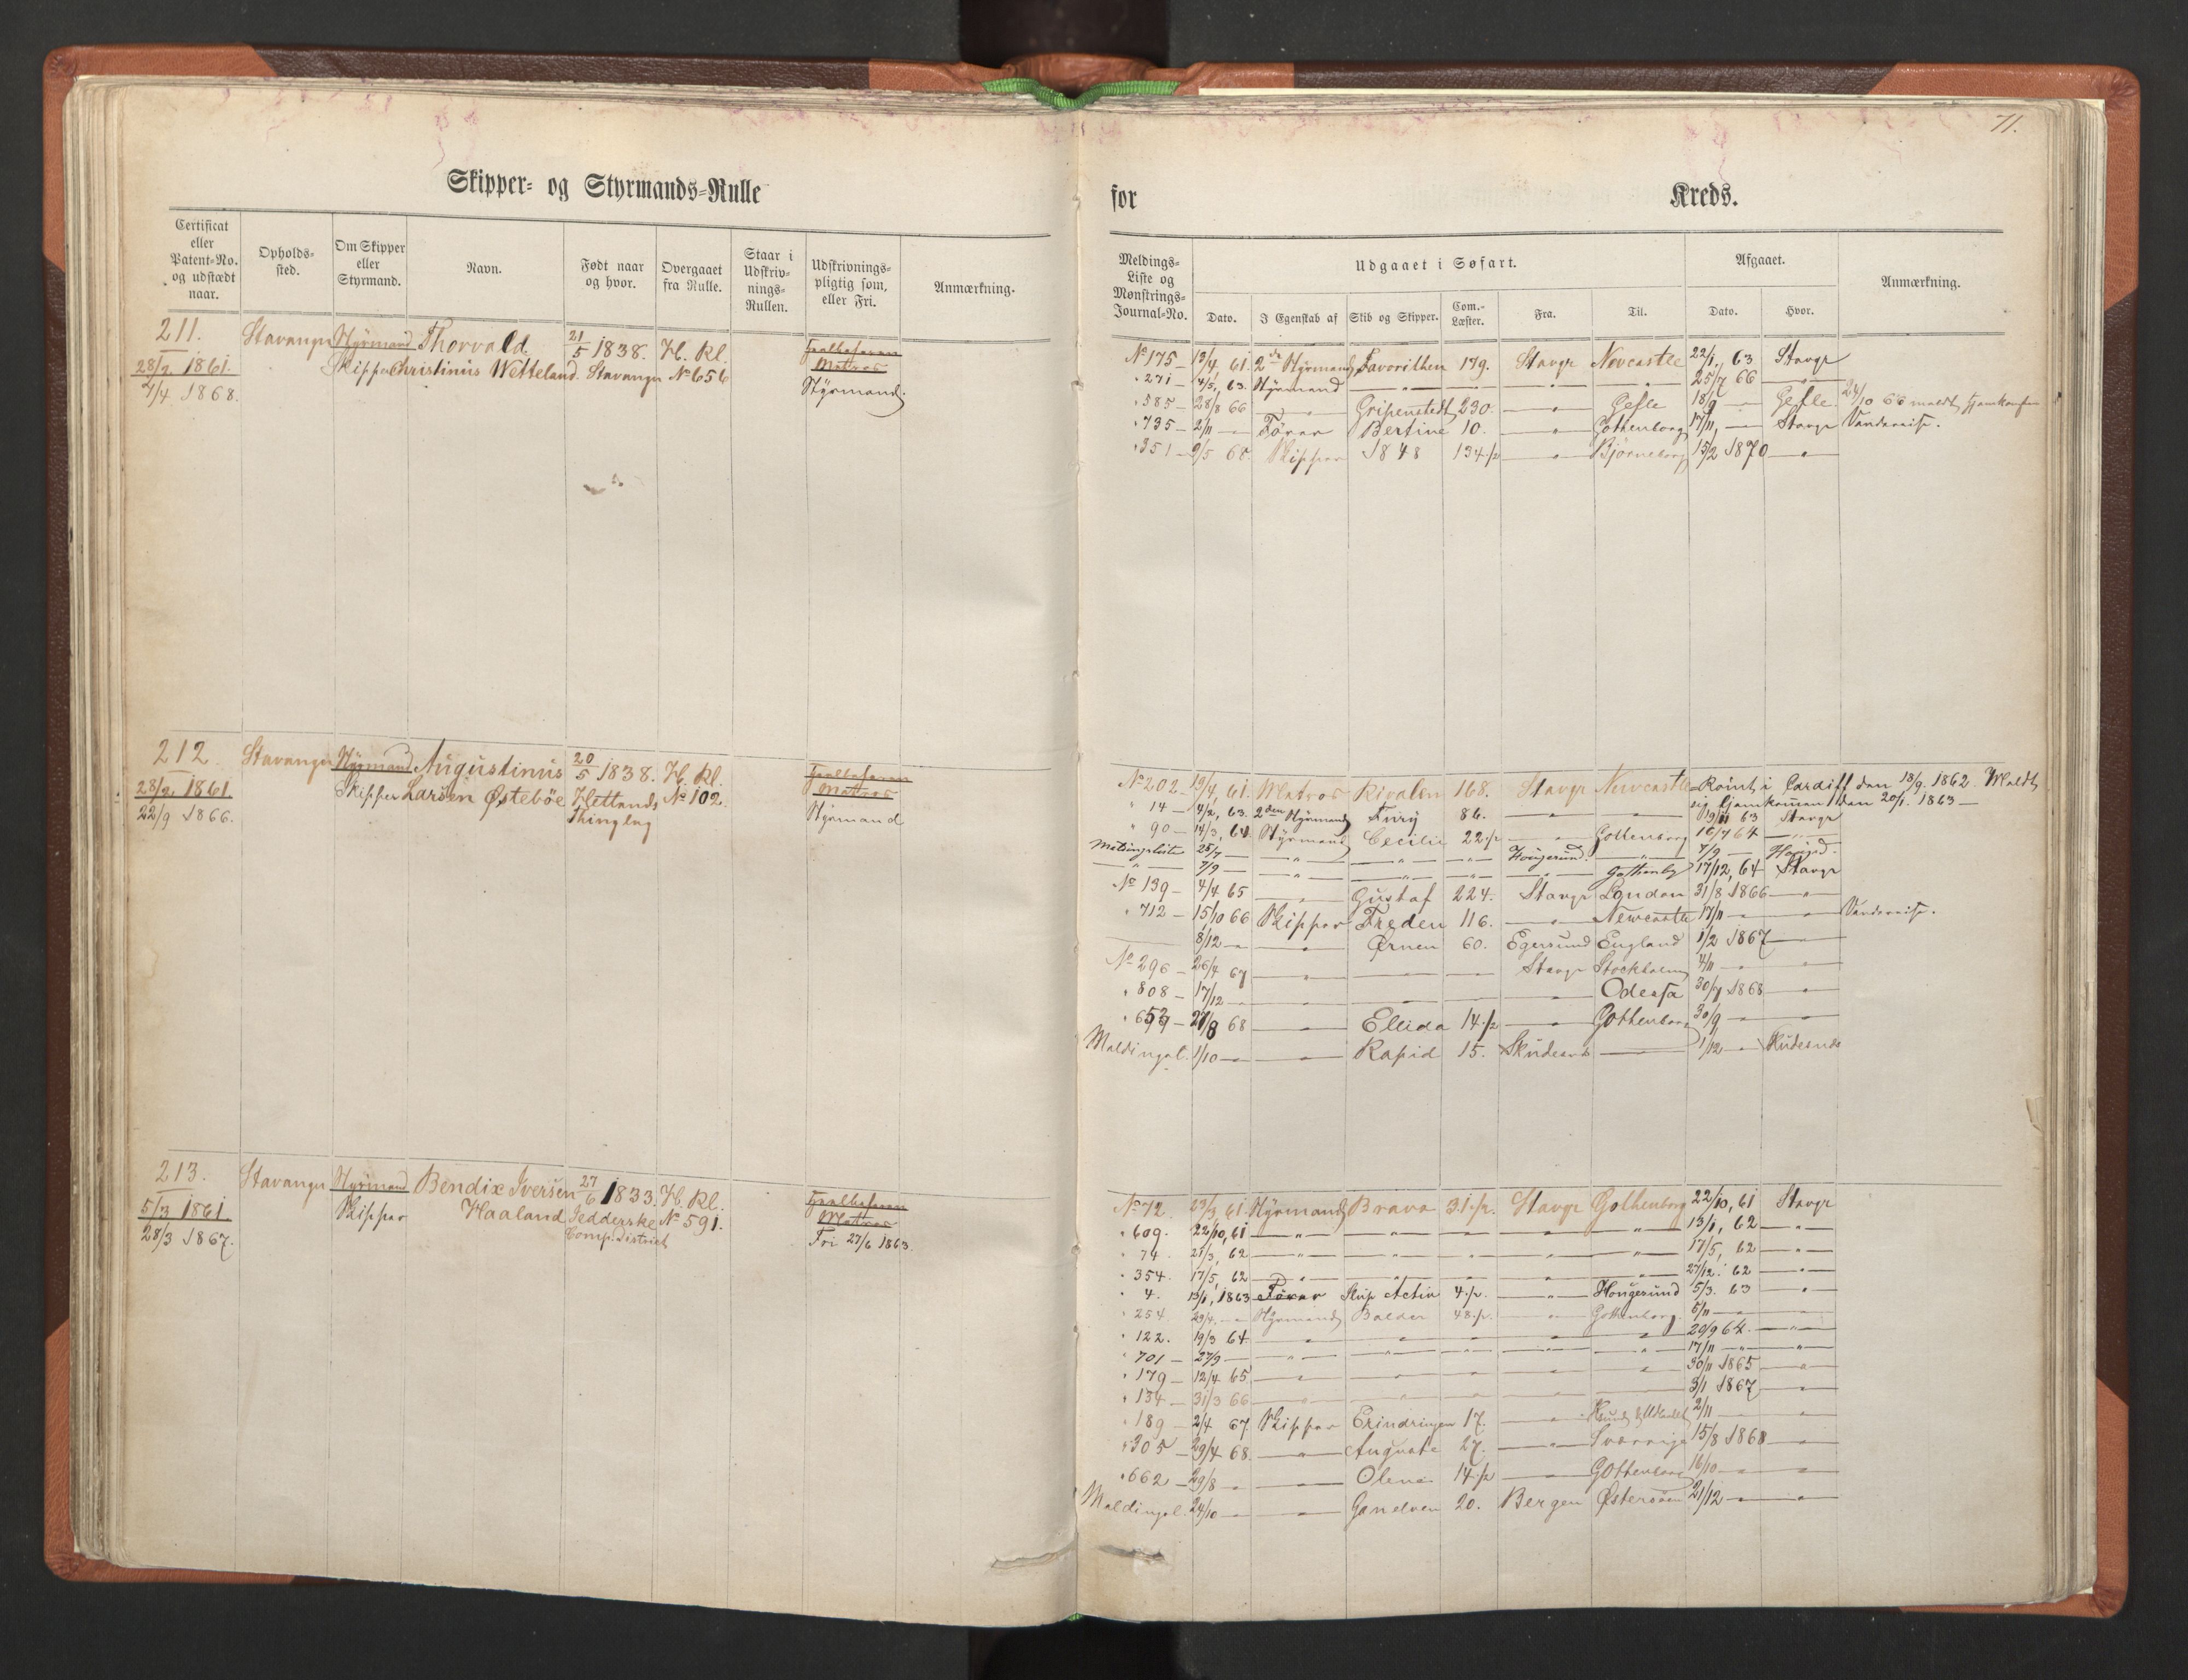 71.
Skipper- og Styrmands-Rulle
for Kreds.
Certificat eller Patent-No. og udstædt naar.
Opholds-sted.
Om Skipper eller Styrmand.
Navn.
Født naar og hvor.
Overgaaet fra Rulle.
Staar i Udskriv-nings-Rullen.
Udskrivnings-pligtig som, eller Fri.
Anmærkning.
Meldings-Liste og Mønstrings-Journal-No.
Udgaaet i Søfart.
Dato.
I Egenskab af
Skib og Skipper.
Com.-Læster.
Fra.
Til.
Afgaaet.
Dato.
Hvor.
Anmærkning.
211. Stavanger Styrmand Thorvald 21/5 1838. H. Kl.
28/2 1861. Skipper Christinus Wetteland. Stavanger No 656 Matros
4/4 1868. Styrmand.
No 175 - 13/4, 61. 2den Styrmand Favorithen 179. Stavgr Newcastle 22/1, 63 Stavgr
" 271 - 4/5, 63. Styrmand — " — — " — " 25/7 66 — " —
" 585 - 28/8 66 — " — Gripenstedt 230. — " — Gefle 18/9 — Gefle. 24/10 66 meldt hjemkommen
" 735 - 2/11 — Fører Bertine 10. — " — Gothenborg 17/11, — Stavgr Vandreise.
" 351 - 9/5 68. Skipper 1848 134 1/2 — " — Bjørneborg 15/2 1870 — " —
212. Stavanger Styrmand Augustinus 20/5 1838. H. Kl.
28/2 1861. Skipper Larsen Østebøe Hetlands No 102. Matros
22/9 1866. Thinglag Styrmand
No 202 - 19/4, 61. Matros Rivalen 168. Stavgr Newcastle - Rømt i Cardiff den 18/9. 1862. Meldt
sig hjemkommen den 20/1. 1863 —
" 14 - 14/2, 63. 2den Styrmand Fury 86. — " — — 19/11 63 Stavgr
" 90 - 14/3, 64 Styrmand Cecilie 22 1/2 — " — Gothenborg 16/7 64 — " —
Meldingsliste 25/7 — " — — " — — " — Hougesund. — " — 7/9 —
— " — 7/9 — " — — " — — " — Gothenbg 17/12, 64 Stavgr
No 139 - 4/4 65 — " — Gustaf 224. Stavgr London 31/8 1866 — " —
" 712 - 15/10 66 Skipper Freden 116. — " — Newcastle 17/11 — " Vandreise.
8/12 — " — Ørnen 60. Egersund England 1/2 1867 — " —
No 296 - 26/4 67 — " — — " — Stavgr Stockholm 4/11 — "
" 808 - 17/12 — " — Odessa 30/7 1868 — "
27/8 68 — " — Ellida 14 1/2 — " — Gothenborg 30/9 — "
Meldingsl. 1/10 — " — Rapid 15. Skudesnæs — 1/12 — " Skudesnæs
213. Stavanger Styrmand Bendix Iversen 27/6 1833. H. Kl.
5/3 1861. Skipper Haaland Jedderske No 591. Matros
28/3 1867. Comp. District Fri 27/6 1863.
No 72. 23/3, 61. Styrmand Bravo 31 1/2. Stavgr Gothenborg 22/10, 61 Stavgr
" 609. 22/10, 61 — " — — " — " — " — " 13/1, 62 — " —
" 74 21/3, 62 — " — — " — " — " — " 17/5, 62 — " —
" 354. 17/5, 62 — " — — " — " — " — " 27/12. 62 — " —
" 4. 13/1, 1863 Fører Slup Activ 4 1/2. — " — Hougesund 5/3. 63 — "
" 254 29/4. — " Styrmand Balder 48 1/2. — " — Gothenborg. 5/11 — "
" 122. 19/3 64 — " — — " — " — " 20/9 64. — " —
" 701 - 27/9 — " — — " — " — " 17/11 — " — "
" 179 - 12/4 65 — " — — " — " — " 30/11 1865 — "
" 134 - 31/3 66 — " — 3/1 1867 — "
" 189 - 2/4 67. Skipper Erindringen 17. — " — 2/11 — "
" 305 - 29/4 68. — " — Auguste 27. — " — Sverrige 15/8 1868 — "
" 662 - 29/8 — " — Olena 14 1/2 — " — Gothenborg 16/10 — "
Meldingsl. 24/10 — " — 20. Bergen Østersøen 21/12 — "